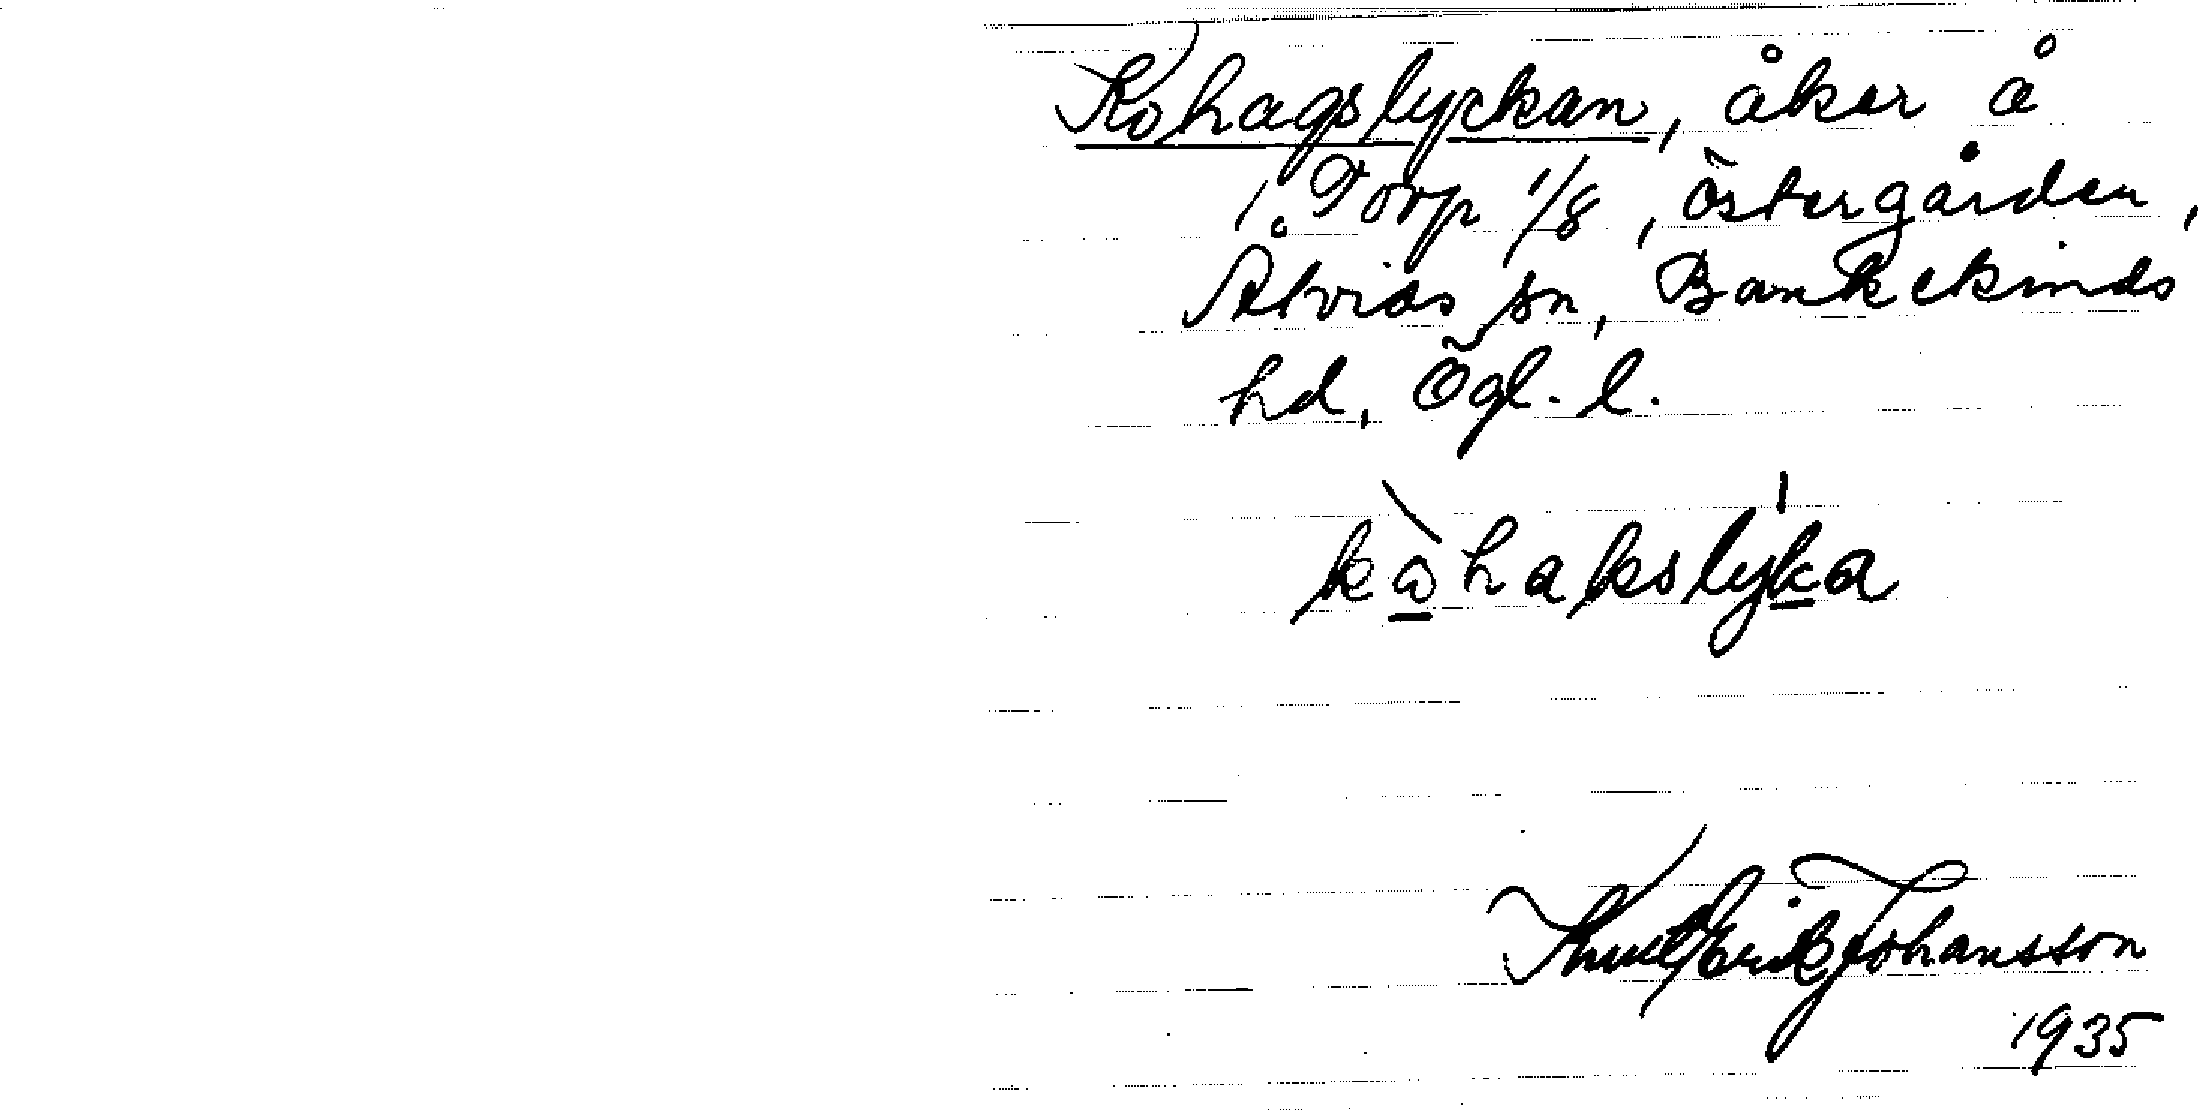 Kohagslyckan, åker å
Torp 1/8, Östergården,
Åtvids sn, Bankekinds
hd, Ögl. l.
kὼhakslyka
Knut Erik Johansson
1935